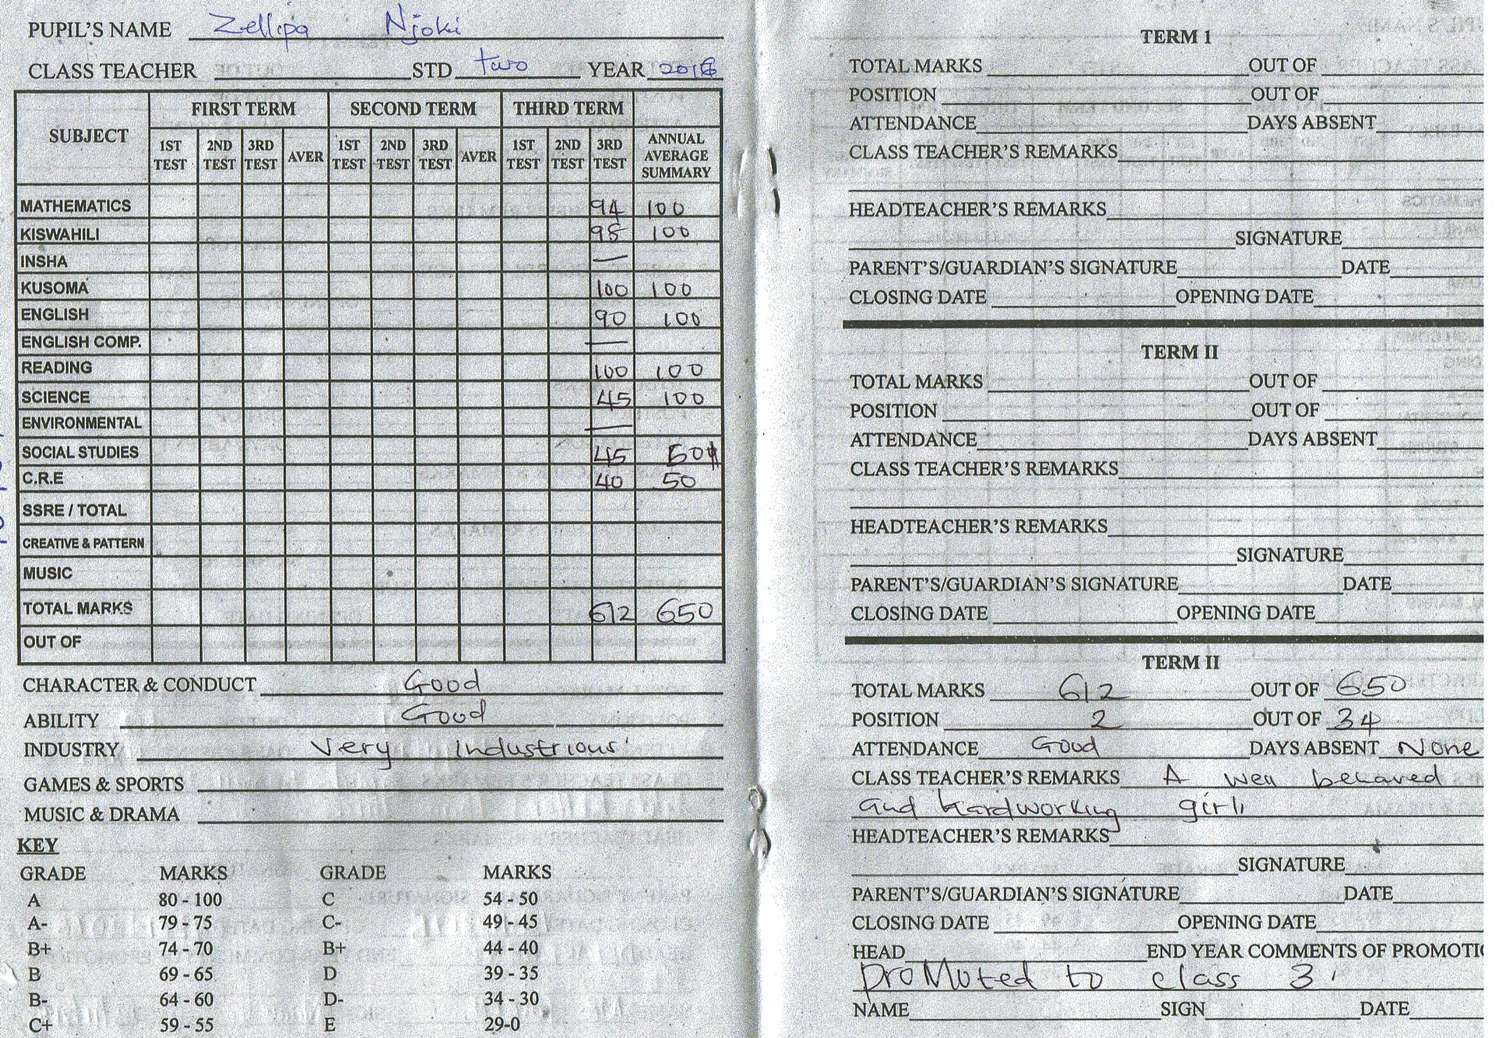 PUPIL'S NAME Zellipa Njoki
CLASS TEACHER STD two YEAR 2016
SUBJECT FIRST TERM SECOND TERM THIRD TERM
1ST TEST 2ND TEST 3RD TEST AVER 1ST TEST 2ND TEST 3RD TEST AVER 1ST TEST 2ND TEST 3RD TEST ANNUAL AVERAGE SUMMARY
MATHEMATICS 94 100
KISWAHILI 98 100
INSHA —
KUSOMA 100 100
ENGLISH 90 100
ENGLISH COMP. —
READING 100 100
SCIENCE 45 100
ENVIRONMENTAL —
SOCIAL STUDIES 45 50
C.R.E 40 50
SSRE / TOTAL
CREATIVE & PATTERN
MUSIC
TOTAL MARKS 612 650
OUT OF
CHARACTER & CONDUCT Good
ABILITY Good
INDUSTRY Very Industrious
GAMES & SPORTS
MUSIC & DRAMA
KEY
GRADE MARKS GRADE MARKS
A 80 - 100 C 54 - 50
A- 79 - 75 C- 49 - 45
B+ 74 - 70 B+ 44 - 40
B 69 - 65 D 39 - 35
B- 64 - 60 D- 34 - 30
C+ 59 - 55 E 29-0
TERM 1
TOTAL MARKS OUT OF
POSITION OUT OF
ATTENDANCE DAYS ABSENT
CLASS TEACHER'S REMARKS
HEADTEACHER'S REMARKS
SIGNATURE
PARENT'S/GUARDIAN'S SIGNATURE DATE
CLOSING DATE OPENING DATE
TERM II
TOTAL MARKS OUT OF
POSITION OUT OF
ATTENDANCE DAYS ABSENT
CLASS TEACHER'S REMARKS
HEADTEACHER'S REMARKS
SIGNATURE
PARENT'S/GUARDIAN'S SIGNATURE DATE
CLOSING DATE OPENING DATE
TERM II
TOTAL MARKS 612 OUT OF 650
POSITION 2 OUT OF 34
ATTENDANCE Good DAYS ABSENT None
CLASS TEACHER'S REMARKS A well behaved
and hardworking girl
HEADTEACHER'S REMARKS
SIGNATURE
PARENT'S/GUARDIAN'S SIGNATURE DATE
CLOSING DATE OPENING DATE
HEAD END YEAR COMMENTS OF PROMOTIO
proMoted to class 3.
NAME SIGN DATE